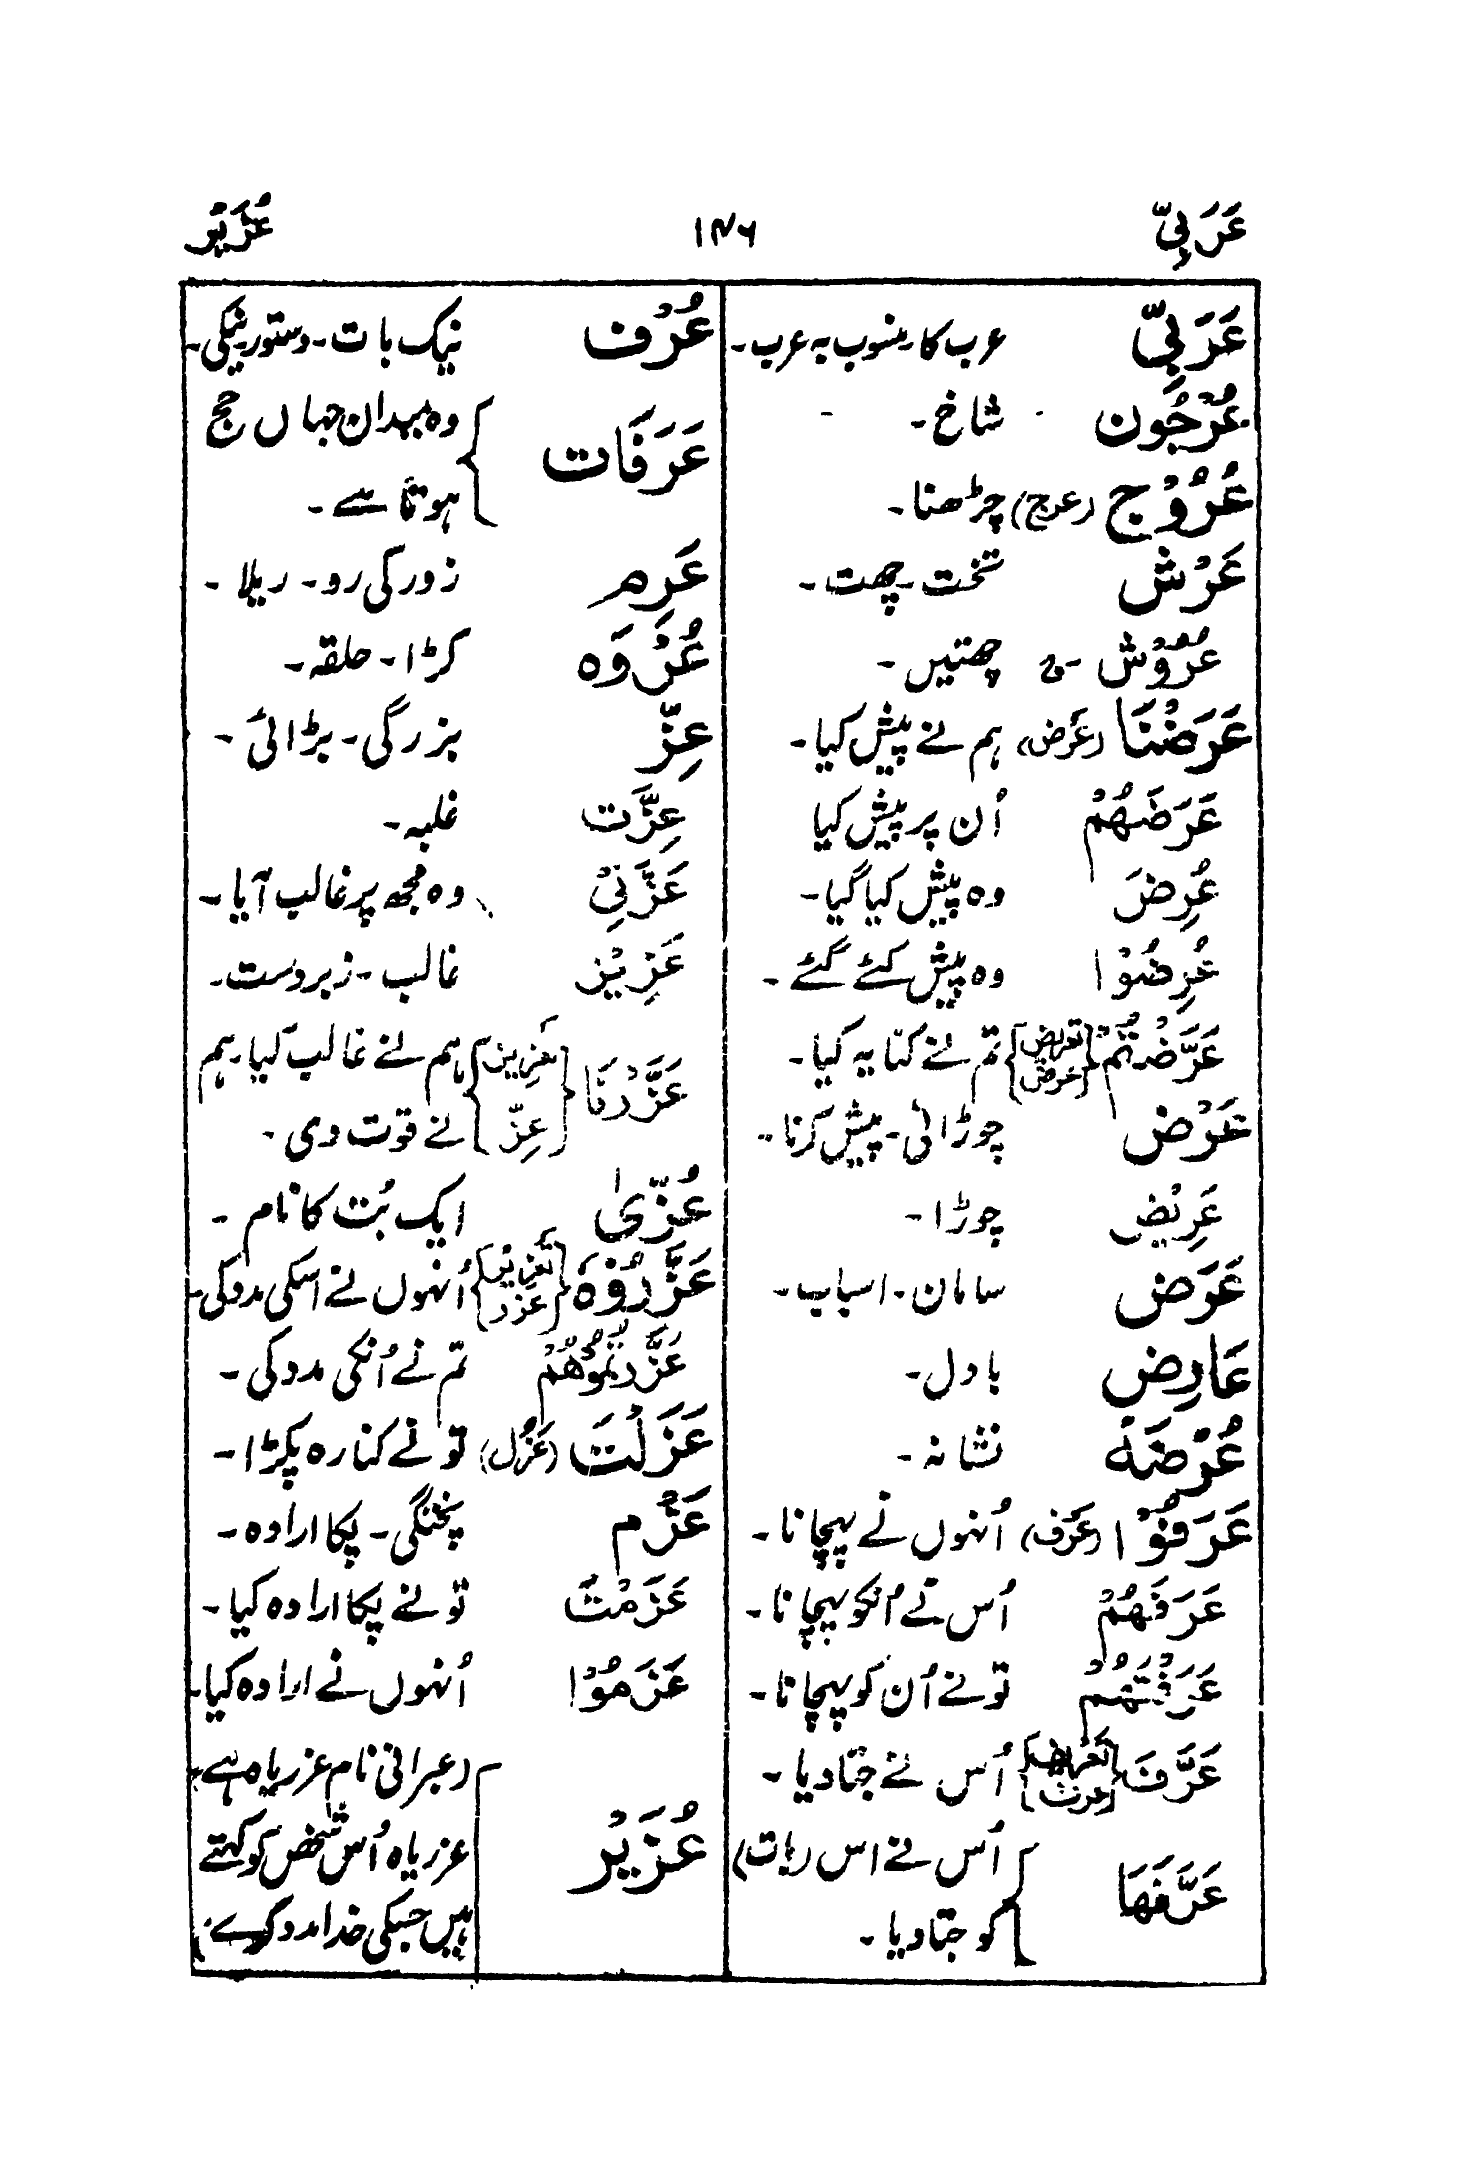 عَرَبِيّ ۱۴۶ عُزَيْر
عَرَبِيّ عرب کا۔ منسوب بہ عرب۔
عُرْجُون شاخ۔
عُرُوْج (عرج) چڑھنا۔
عَرْش تخت۔ چھت۔
عُرُوْش ۔ج چھتیں۔
عَرَضْنَا (عَرَض) ہم نے پیش کیا۔
عَرَضَهُمْ اُن پر پیش کیا
عُرِضَ وہ پیش کیا گیا۔
عُرِضُوْا وہ پیش کئے گئے۔
عَرَّضْتُمْ {تعریض عرض} تم نے کنایہ کیا۔
عَرْض چوڑائی۔ پیش کرنا۔
عَرِيْض چوڑا۔
عَرَض سامان۔ اسباب۔
عَارِض بادل۔
عُرْضَة نشانہ۔
عَرَفُوْا (عَرَف) اُنہوں نے پہچانا۔
عَرَفَهُمْ اُس نے اُنکو پہچانا۔
عَرَفْتَهُمْ تو نے اُن کو پہچانا۔
عَرَّفَ {تعریف عرف} اُس نے جتا دیا۔
عَرَّفَهَا اُس نے اس (بات)
کو جتا دیا۔
عُرْف نیک بات۔ دستور۔ نیکی۔
عَرَفَات وہ میدان جہاں حج
ہوتا ہے۔
عَرِم زور کی رو۔ ریلا۔
عُرْوَه کڑا۔ حلقہ۔
عِزّ بزرگی۔ بڑائی۔
عِزَّت غلبہ۔
عَزَّنِيْ وہ مجھ پر غالب آیا۔
عَزِيْز غالب۔ زبردست۔
عَزَّزْنَا {تعزیز عِزّ} ہم نے غالب کیا۔ ہم
نے قوت دی۔
عُزّىٰ ایک بُت کا نام۔
عَزَّرُوْهُ {تعزیر عزر} اُنہوں نے اسکی مدد کی۔
عَزَّرْتُمُوْهُمْ تم نے اُنکی مدد کی۔
عَزَلْتَ (عَزْل) تو نے کنارہ پکڑا۔
عَزْم پختگی۔ پکا ارادہ۔
عَزَمْتَ تو نے پکا ارادہ کیا۔
عَزَمُوْا اُنہوں نے ارادہ کیا۔
عُزَيْر (عبرانی نام عزریاہ ہے۔
عزریاہ اُس شخص کو کہتے
ہیں جسکی خدا مدد کرے۔)